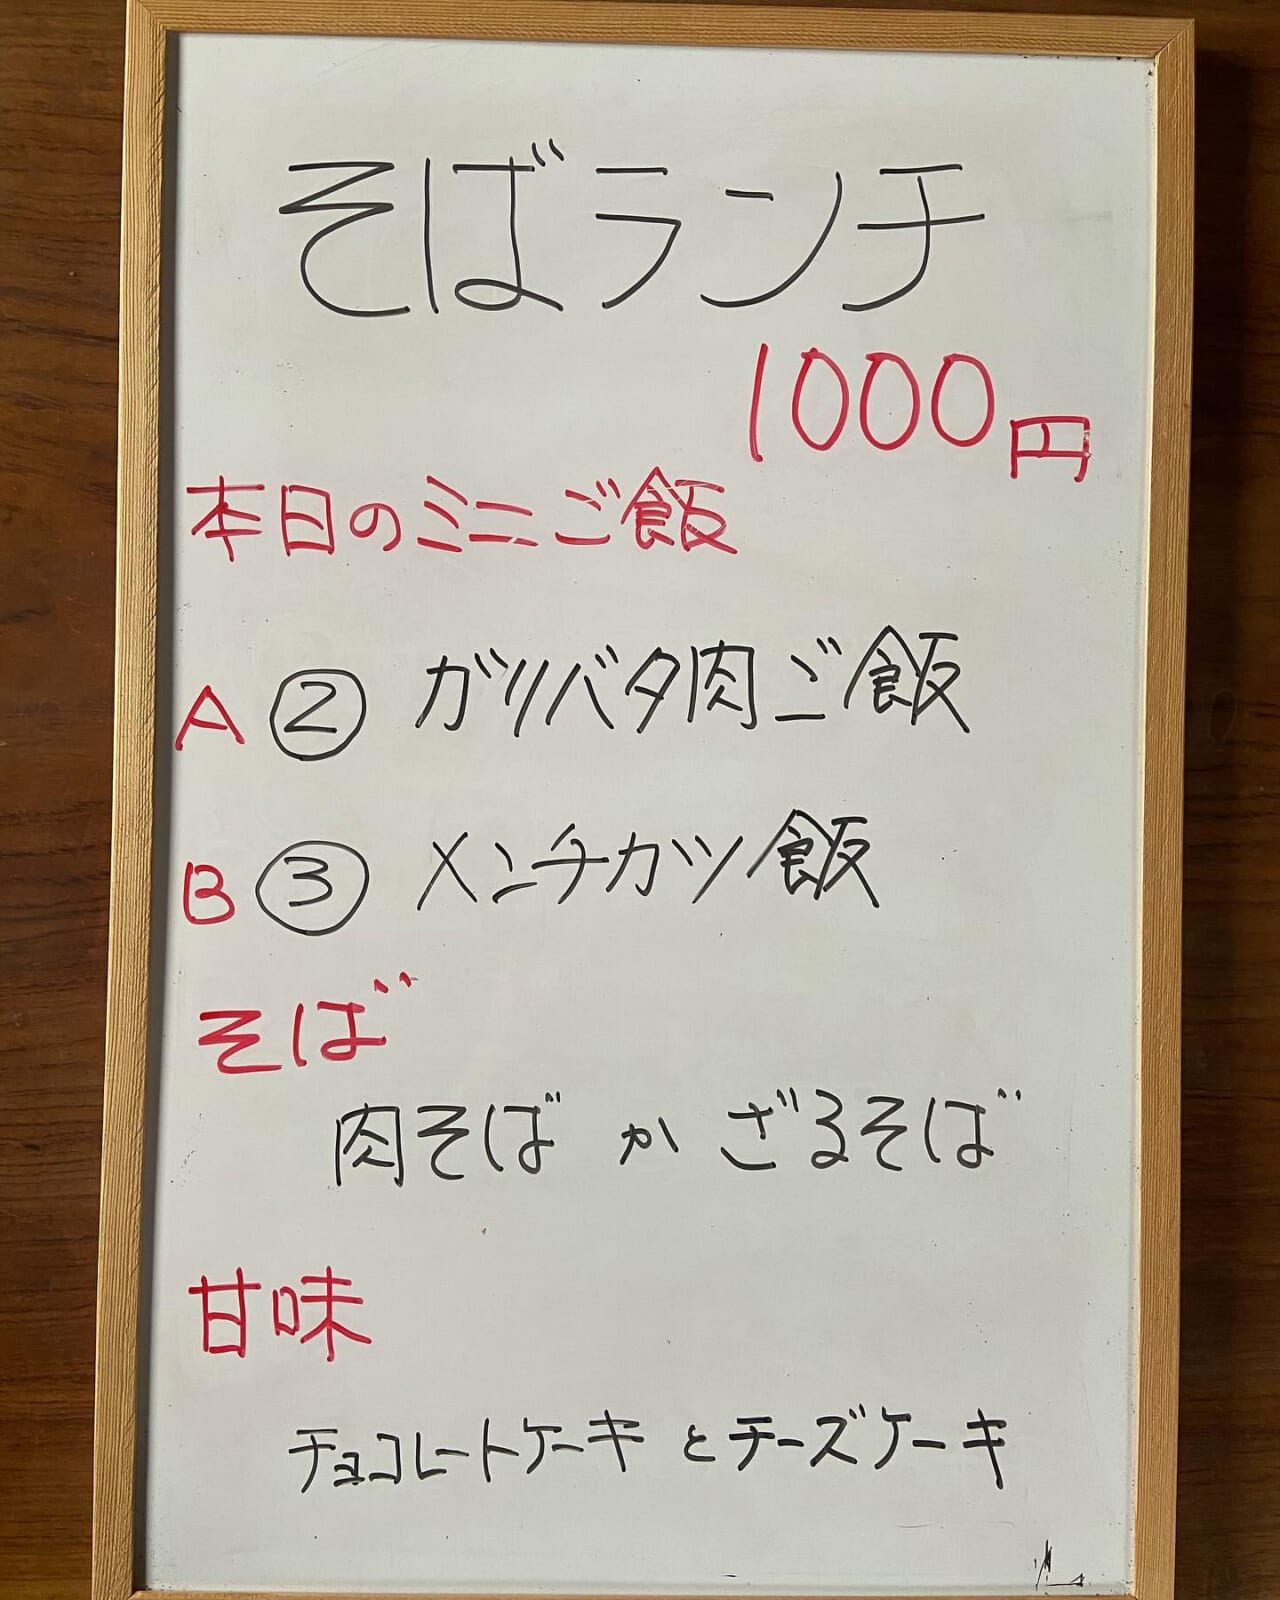 そばランチ
1000円
本日のミニご飯
A ② ガリバタ肉ご飯
B ③ メンチカツ飯
そば
肉そば か ざるそば
甘味
チョコレートケーキ と チーズケーキ